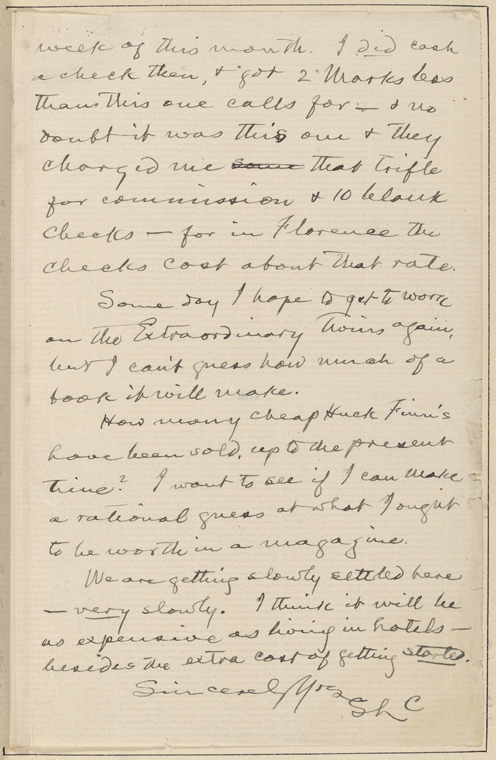 week of this month. I did cash
a check then, & got 2 Marks less
than this one calls for — & no
doubt it was this one & they
charged me some that trifle
for commission & 10 blank
checks — for in Florence the
checks cost about that rate.
Some day I hope to get to work
on the Extraordinary Twins again,
but I can't guess how much of a
book it will make.
How many cheap Huck Finn's
have been sold, up to the present
time? I want to see if I can make
a rational guess at what I ought
to be worth in a magazine.
We are getting slowly settled here
— very slowly. I think it will be
as expensive as living in hotels —
besides the extra cost of getting started.
Sincerely Yrs
SLC